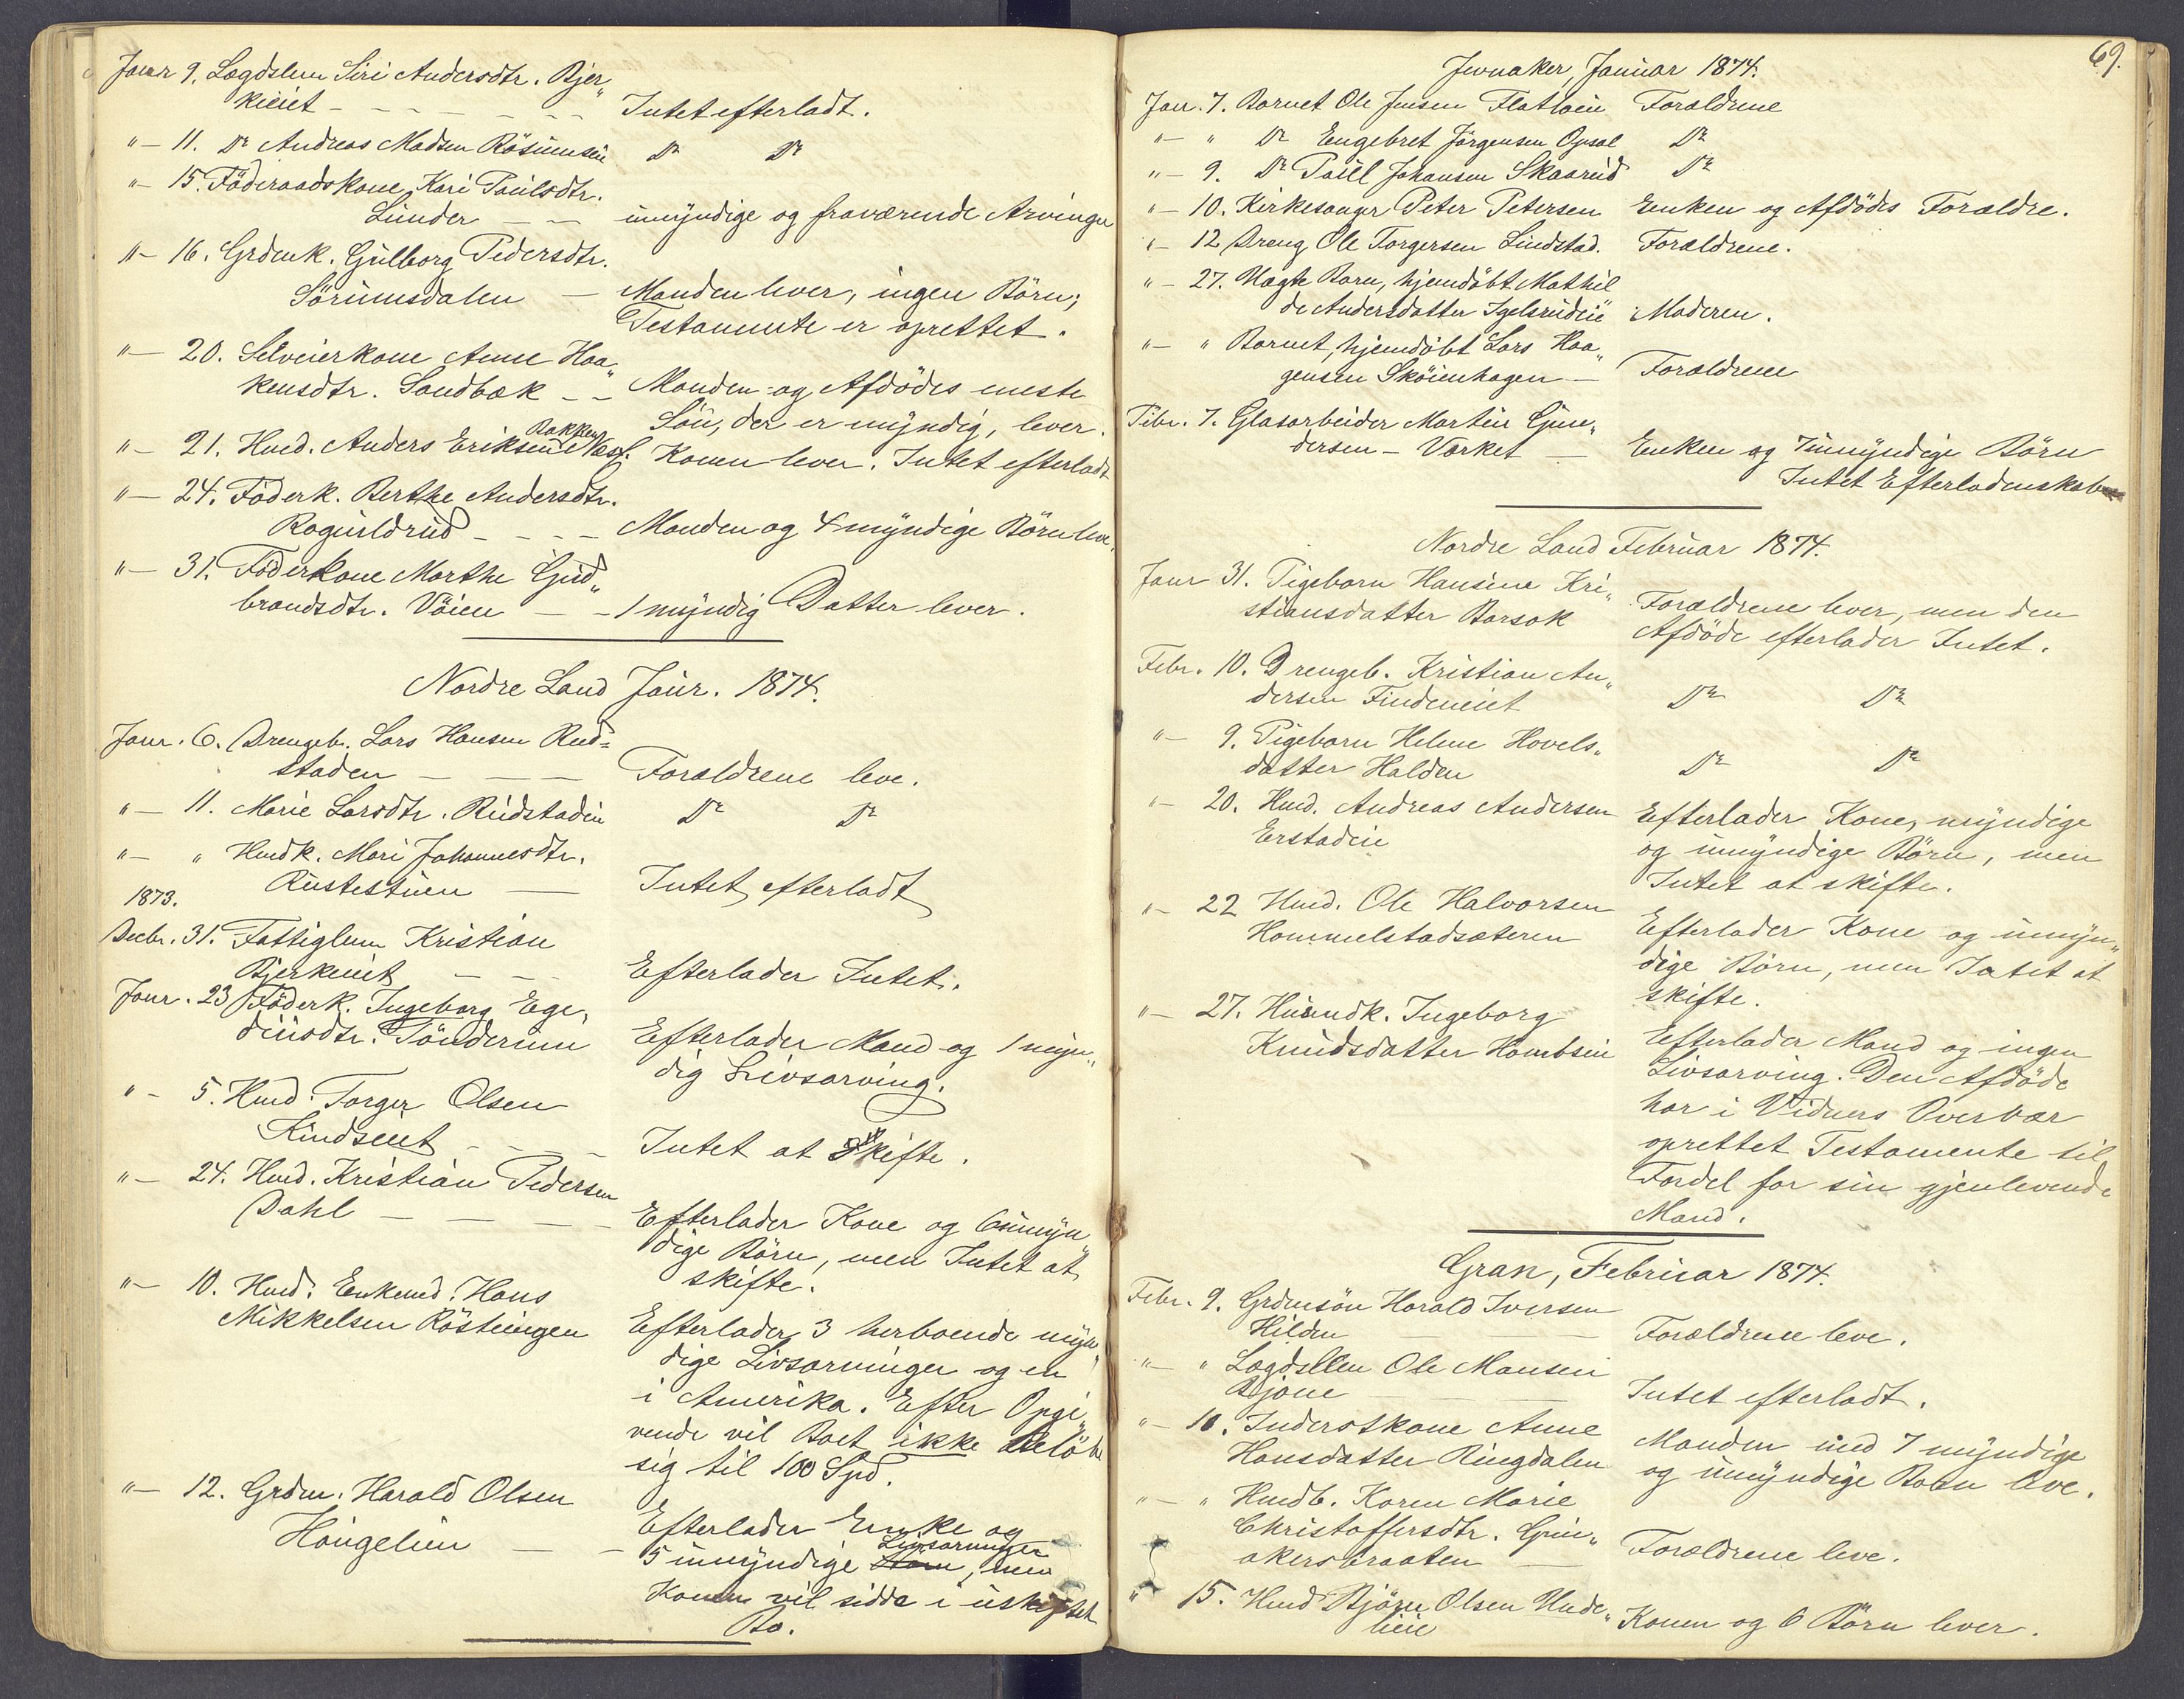 Janr 9. Lægdslem Siri Andersdtr. Bjer„
keiet - - - - - - Intet efterladt.
"- 11. Do Andreas Madsen Rösumseie Do Do
"- 15. Föderaadskone Kari Paulsdtr.
Lunder - - umyndige og fraværende Arvinger
"- 16. Grdmk. Gulborg Pedersdtr.
Sörumsdalen - Manden lever, ingen Börn;
Testamente er oprettet.
"- 20. Selveierkone Anne Haa„
kensdtr. Sandbæk - - Manden og Afdödes eneste
Sön, der er myndig, lever.
"- 21. Husmd. Anders Eriksen Bakken Næs. Konen lever. Intet efterladt
"- 24. Föderk. Berthe Andersdtr.
Ragnildrud - - - - Manden og 4 myndige Börn leve.
"- 31. Föderkone Marthe Gud„
brandsdtr. Vöien - - 1 myndig Datter lever.
Nordre Land Janr. 1874.
Janr. 6. Drengeb. Lars Hansen Rud=
staden - - - Forældrene leve.
"- 11. Marie Larsdtr. Rudstadeie Do Do
"- " Husmdk. Mari Johannesdtr.
Rustestuen - Intet efterladt
1873.
Decbr. 31. Fattiglem Kristian
Bjerkeeiet - - - Efterlader Intet.
Janr. 23 Föderk. Ingeborg Ege„
diusdtr. Tönderum Efterlader Mand og 1 myn„
dig Livsarving.
"- 5. Husmd. Torger Olsen
Lindseiet - - - Intet at skifte.
"- 24. Husmd. Kristian Pedersen
Dahl - - - - Efterlader Kone og 6 umyn„
dige Börn, men Intet at
skifte.
"- 10. Husmd. Enkemd. Hans
Mikkelsen Rösteingen Efterlader 3 herboende myn„
dige Livsarvinger og en
i Amerika. Efter Opgi„
vende vil Boet ikke belöbe
sig til 100 Spd.
"- 12. Grdm. Harald Olsen
Haugelien - - Efterlader Enke og
5 umyndige Börn Livsarvinger, men
Konen vil sidde i uskiftet
Bo.
69.
Jevnaker, Januar 1874.
Jan. 7. Barnet Ole Jensen Flatlaeie Forældrene
"- " Do Engebret Jörgensen Opsal Do
"- 9. Do Paul Johansen Skaarud Do
"- 10. Kirkesanger Peter Petersen Enken og Afdödes Forældre.
"- 12 Dreng Ole Torgersen Lindstad. Forældrene.
"- 27. Uægte Barn, hjemdöbt Mathil
de Andersdatter Igelsrudeie Moderen.
"- " Barnet, hjemdöbt Lars Haa„
gensen Sköienhagen - Forældrene
Febr. 7. Glasarbeider Martin Gun„
dersen - Værket - Enken og 7 umyndige Börn
Intet Efterladenskab
Nordre Land Februar 1874.
Janr 31. Pigebarn Hansine Kri„
stiansdatter Barsok Forældrene lever, men den
Afdöde efterlader Intet.
Febr. 10. Drengeb. Kristian An„
dersen Findeneiet Do Do
"- 9. Pigebarn Helene Hovels„
datter Halden Do Do
"- 20. Husmd. Andreas Andersen Efterlader Kone, myndige
Erstadeie og umyndige Börn, men
Intet at skifte.
"- 22 Husmd. Ole Halvorsen Efterlader Kone og umyn„
Hommelstadsæteren dige Börn, men Intet at
skifte.
"- 27. Husmdk. Ingeborg
Knudsdatter Hombseie Efterlader Mand og ingen
Livsarving. Den Afdöde
har i Vidners Overvær
oprettet Testamente til
Fordel for sin gjenlevende
Mand.
Gran, Februar 1874.
Febr. 9. Grdmsön Harald Iversen
Hilden - - Forældrene leve.
"- " Lægdsllem Ole Mansen
Bjone - - Intet efterladt.
"- 10. Inderstkone Anne Manden med 7 myndige
Hansdatter Ringdalen og umyndige Börn leve.
"- " Husmdb. Karen Marie
Christoffersdtr. Grin„
akersbraaten - Forældrene leve.
" 15. Husmd Björn Olsen Unde„ Konen og 6 Börn lever.
lieie